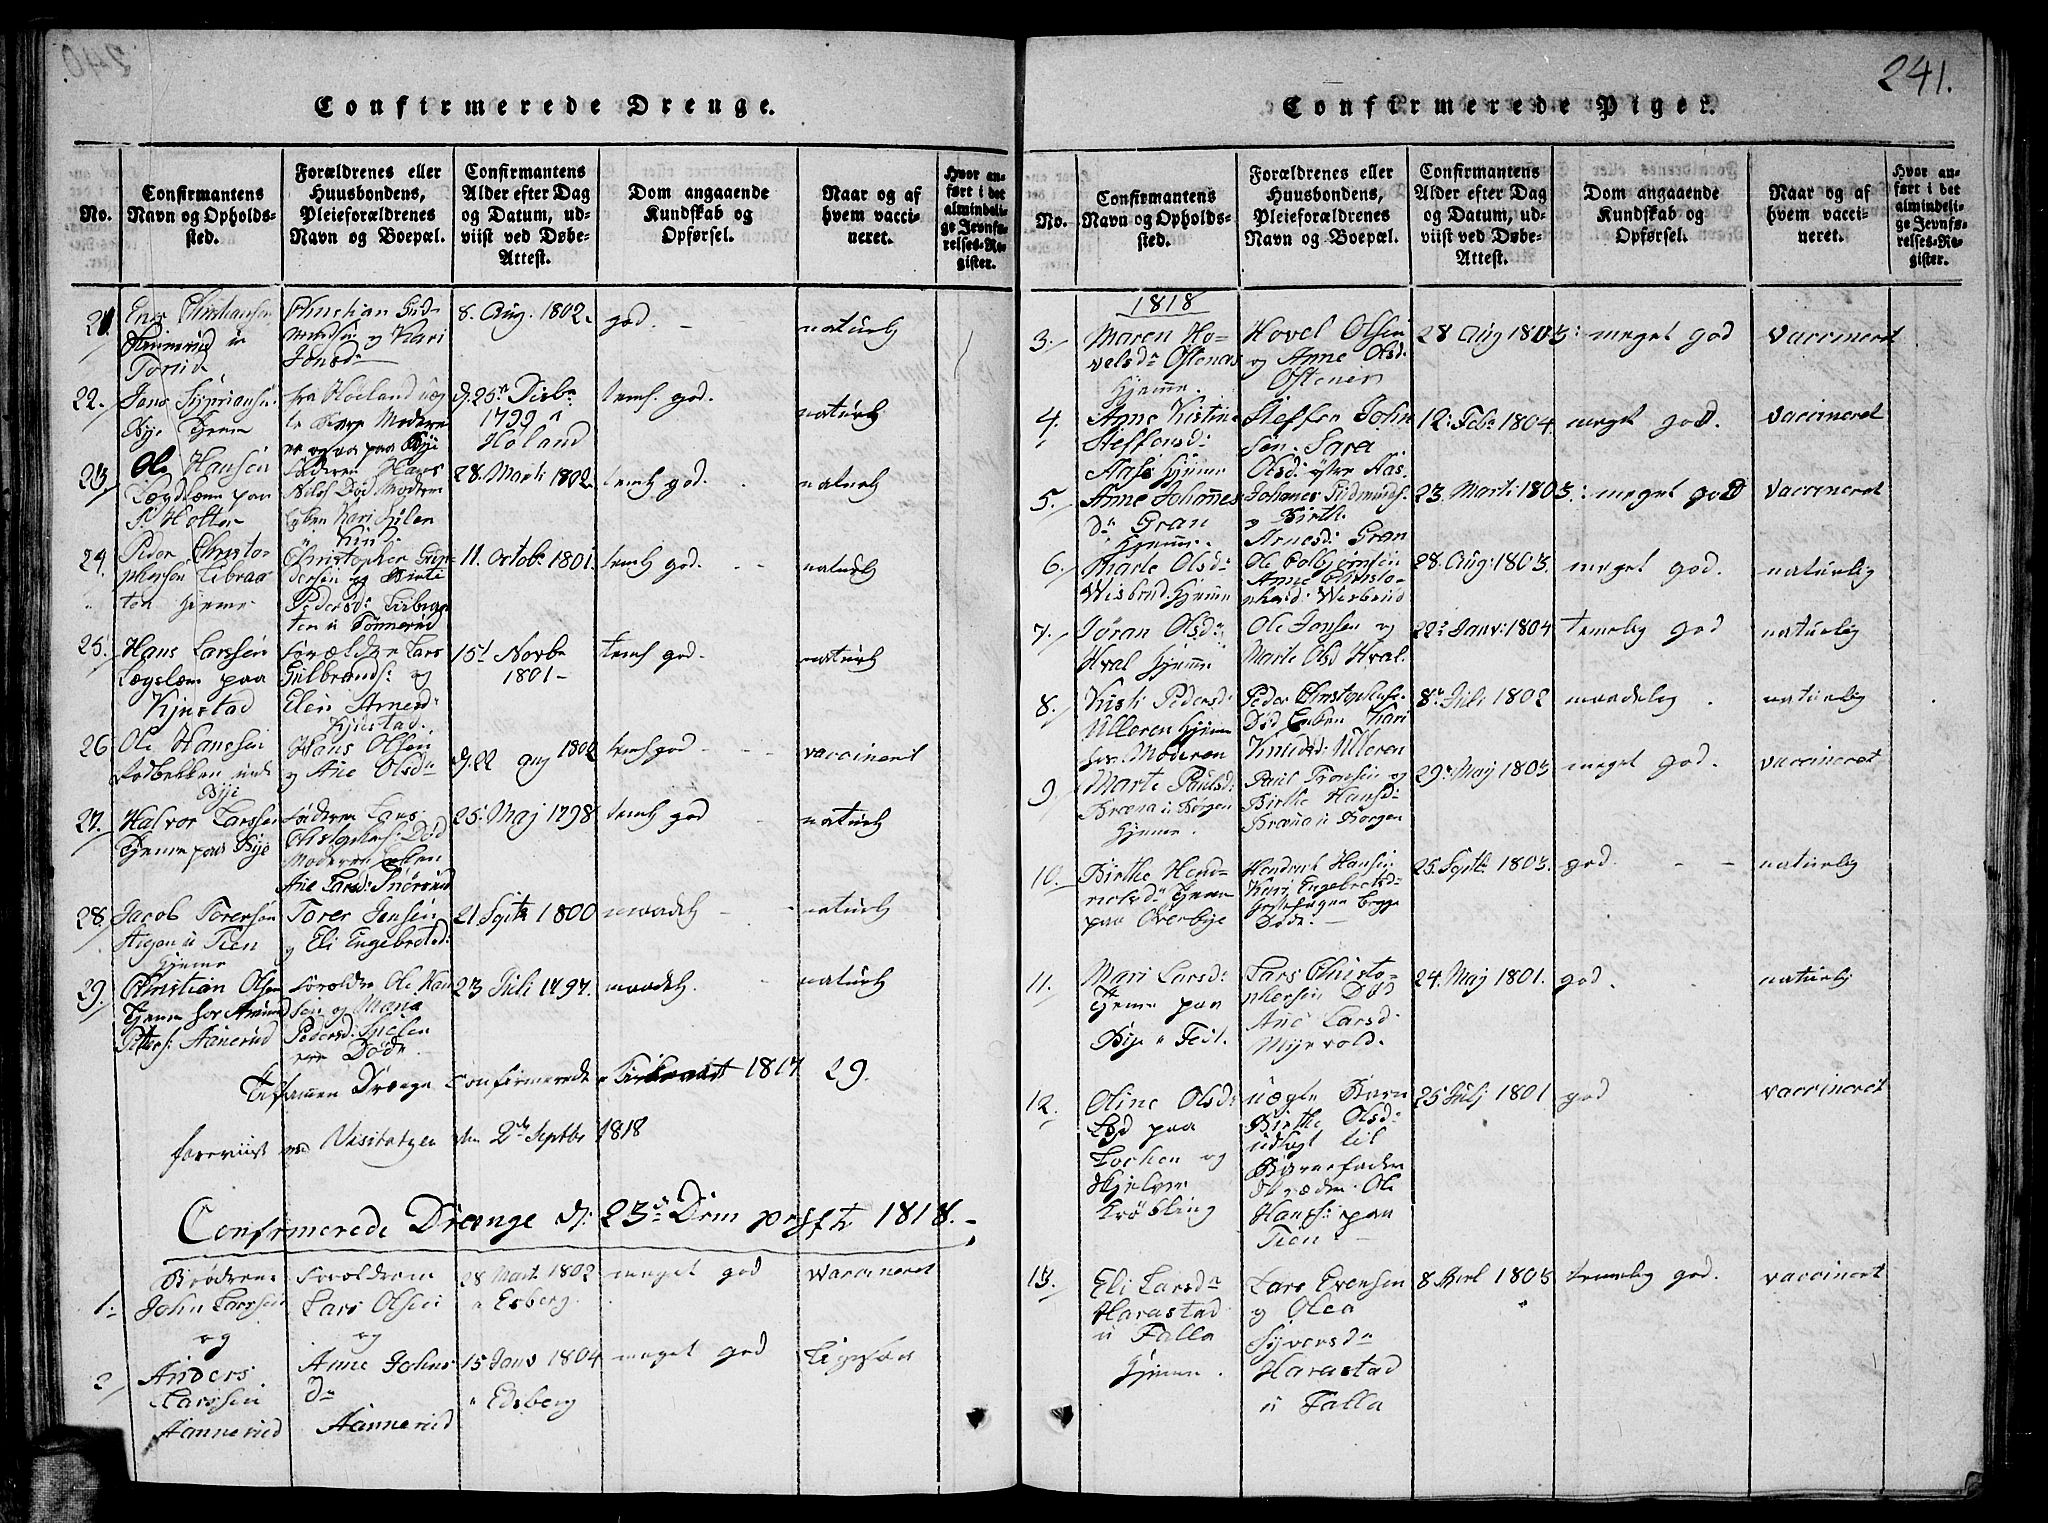 Confirmerede Drenge.
No.
Confirmantens
Navn og Opholds-
sted.
Forældrenes eller
Huusbondens,
Pleieforældrenes
Navn og Boepæl.
Confirmantens
Alder efter Dag
og Datum, ud-
viist ved Døbe-
Attest.
Dom angaaende
Kundskab og
Opførsel.
Naar og af
hvem vacci-
neret.
Hvor an-
ført i det
almindeli-
ge Jevnfø-
relses-Re-
gister.
21.
Christiansen
Christian Gud-
og Kari
8. Aug. 1802.
god.
naturl
22.
Hjeme
fra Höeland
1799
Höland
teml. god.
naturl
23.
Ole Hansen
paa
Holter
Faderen Hans
Nilss Död Moderen
28. Marti 1802.
teml god.
naturl
24.
Peder Christo-
phersen
hjeme
Christopher
Pedersd:
11. Octobr 1801.
teml god.
naturl
25.
Hans Larssen
Lægslem paa
Kjustad
Forældre Lars
Gulbrands: og
Elen Arnesd:
Kjustad.
15d Novbr
1801
teml god.
naturl
26
Ole Hanssen
Bije
Hans Olsen
og Ane Olsdr
d. 22 aug 1802
teml god
vaccineret
27.
Halvor Larssen
Tjener paa Bije
Faderen Lars
Christophers: Död
Moderen Enken
Ane Larsd:
25. Maj 1798
teml god
naturl
28.
Jacob Torersen
u Tien
hjeme
Torer Jensen
og Eli Engebretsd:
21 Septbr 1800
maadel
naturl
29.
Christian Olsen
Tjener hos
Peders: Aanerud
Forældre Ole Han
sen og
Pedersd:
Döde.
23 Juli 1797.
maadel.
naturl
Tilsammen Drænge confirmerede 1817 29.
foreviist ved Visitatzen den 2de Septbr 1818
Confirmerede Drænge d: 23de 1818.
1.
Brödrene
John Larssen
og
Forældrene
Lars Olsen
og
28 Marti 1802
Edsberg
meget god
vaccineret
2
Anders
Larssen
Aannerud
Anne Johns
Dr
Aannerud
15 Janv 1804
Edsberg
meget god
Ligesaa
241.
Confirmerede Piger.
No.
Confirmantens
Navn og Opholds-
sted.
Forældrenes eller
Huusbondens,
Pleieforældrenes
Navn og Boepæl.
Confirmantens
Alder efter Dag
og Datum, ud-
viist ved Døbe-
Attest.
Dom angaaende
Kundskab og
Opførsel.
Naar og af
hvem vacci-
neret.
Hvor an-
ført i det
almindeli-
ge Jevnfø-
relses-Re-
gister.
1818
3.
Maren Ho-
velsdr Östenas
hjeme.
Hovel Olsen
og Anne Olsd.
28 Aug 1803:
meget god
vaccineret
4.
Ane Kistine
Steffensd:
Aass hjeme
Steffen John
sen. Sara
Olsd: östre Aas.
12. Febr 1804.
meget god.
vaccineret
5.
Anne Johannes
Dr Gran
hjeme.
Johanes Gudmunds.
og Birthe
Arnesd: Gran
23. Marti 1803.
meget god
vaccineret
6.
Marte Olsdr
Wisbrud. hjeme
Ole
Anne Christo-
phersd: Wisbrud
28. Aug: 1803.
meget god.
naturlig
7.
Jöran Olsdr
Hval hjeme
Ole Jonsen og
Marte Olsd Hval.
22. Janv: 1804
temelig god
naturlig
8.
Kisti Pedersd:
Ulleren hjeme
hos Moderen
Peder Christophers.
Död Enken Kari
Knudsd: Ulleren
8de Juli 1802
maadelig.
naturlig
9.
Marte Paulsd:
Bræna u Börgen
hjeme.
Paul Tronsen og
Birthe Hansd:
Bræna u Borgen
29de Maj 1803
meget god.
vaccineret
10.
Birthe Hend-
richsdr hjem
paa Överbye
Hendrich Hansen
Kari Engebretsd:
begge
Döde.
25. Septbr 1803.
god.
naturlig
11.
Mari Larsd:
Tjener paa
Bije u Feil.
Lars Christo-
phersen Död
Ane Larsd
Myrvold.
24. Maj 1801.
god.
naturlig
12.
Oline Olsd:
paa
Lochen og
uægte Barn
Birthe Olsd:
udlagt til
Barnefader
Ole
Hanss: paa
Tien
25 Julj 1801
god
vaccineret
13.
Eli Larsdr
Harastad
u Falla
hjeme.
Lars Evensen
og Olea
Syversdr
Harastad
u Falla
8 Aprl 1803
temelig god.
vaccineret